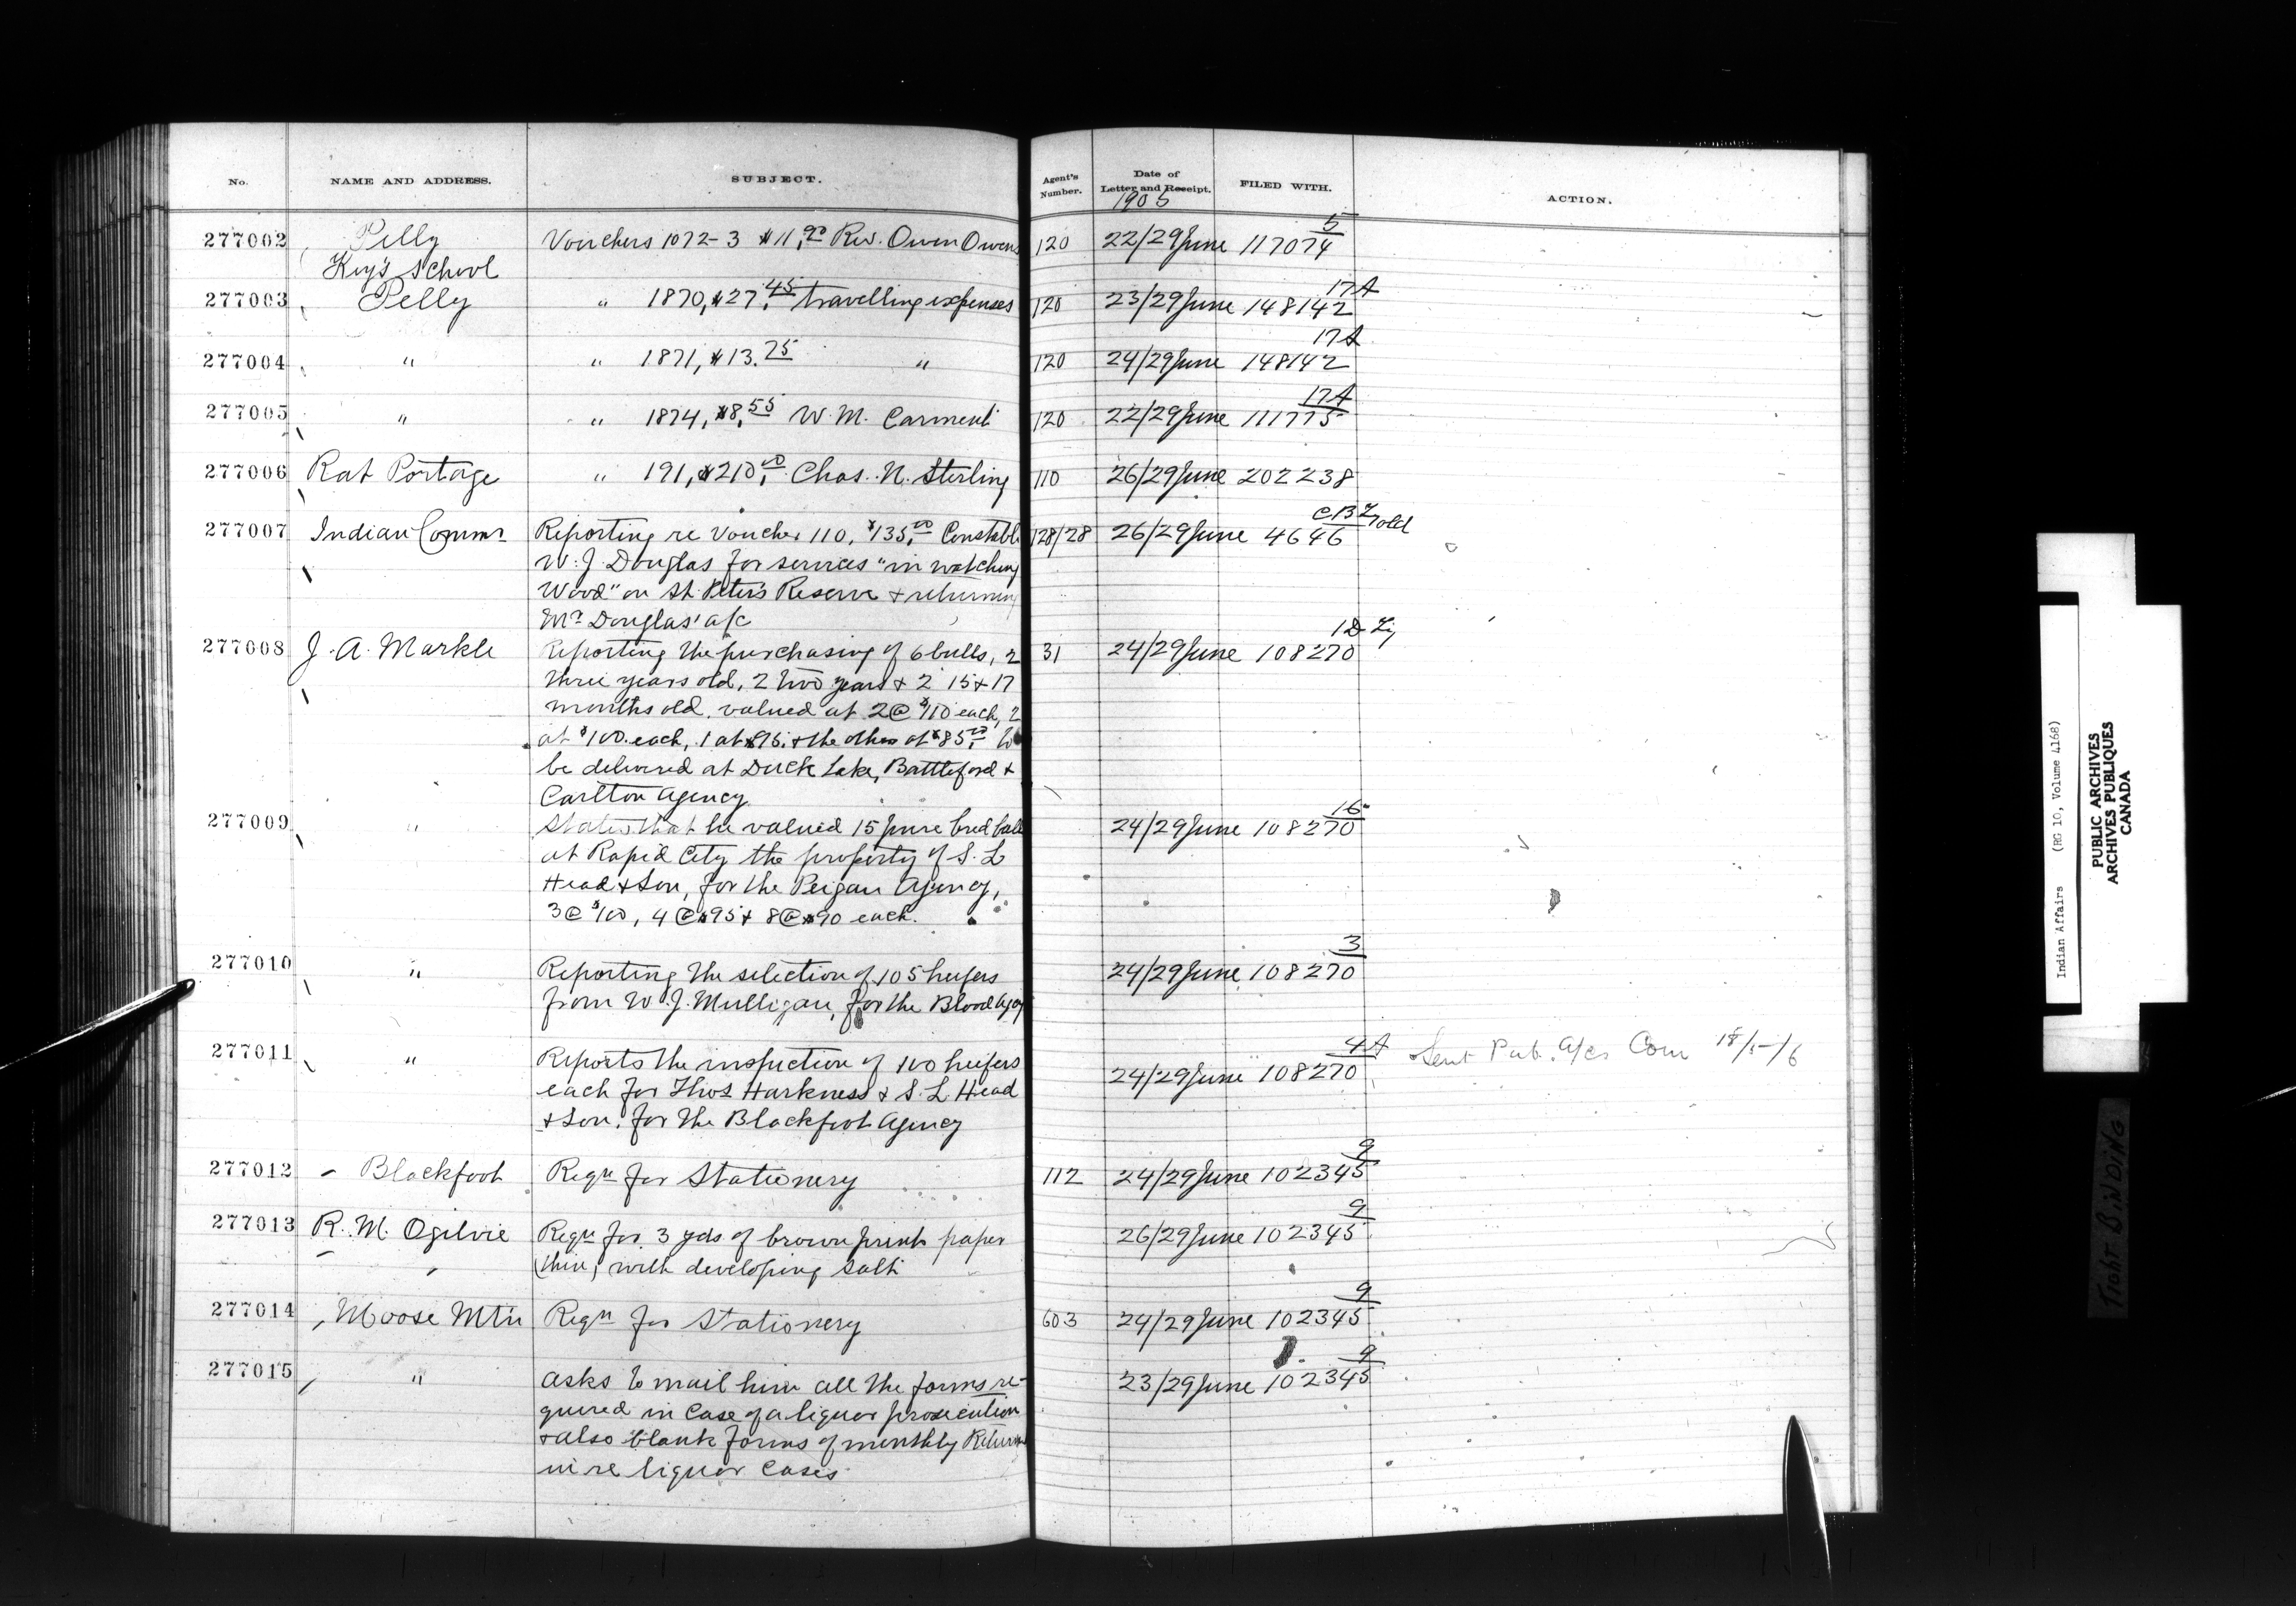 No. NAME AND ADDRESS. SUBJECT. Agent's Number. Date of Letter and Receipt. FILED WITH. ACTION.
1905
277002 Pelly Vouchers 1072-3 $11.90 Rev. Owen Owens 120 22/29 June 117074 5
Key's School
277003 Pelly " 1870, $27.45 travelling expenses 120 23/29 June 148142 17A
277004 " " 1871, $13.75 " 120 24/29 June 148142 17A
277005 " " 1874, $8.55 W. M. Carment 120 22/29 June 111775 17A
277006 Rat Portage " 191, $210.00 Chas. N. Sterling 110 26/29 June 202238
277007 Indian Commr Reporting re Voucher 110, $135.00 Constable 128/28 26/29 June 4646 old
W. J. Douglas for services "in watching
Wood" on St. Peter's Reserve & returning
Mr Douglas' a/c
277008 J. A. Markle Reporting the purchasing of 6 bulls, 2 31 24/29 June 108270 1D
three years old, 2 two years & 2 15 & 17
months old. valued at 2 @ $110 each, 2
at $100. each, 1 at $75. & the other at $85.00 to
be delivered at Duck Lake, Battleford &
Carlton Agency
277009 " States that he valued 15 pure bred bulls 24/29 June 108270 16
at Rapid City the property of S. L
Head & Son, for the Peigan Agency,
3 @ $100, 4 @ $95 & 8 @ $90 each.
277010 " Reporting the selection of 105 heifers 24/29 June 108270 3
from W. J. Mulligan, for the Blood Agcy
277011 " Reports the inspection of 100 heifers 24/29 June 108270 4A Sent Pub. A/cs Com 18/5/6
each for Thos Harkness & S. L. Head
& Son. for the Blackfoot Agency
277012 Blackfoot Reqn for Stationery 112 24/29 June 102345 9
277013 R. M. Ogilvie Reqn for 3 yds of brown print paper 26/29 June 102345 9
(thin) with developing salt
277014 Moose Mtn Reqn for Stationery 603 24/29 June 102345 9
277015 " asks to mail him all the forms re- 23/29 June 102345 9
quired in case of a liquor prosecution
& also blank forms of monthly Returns
in re liquor cases
Indian Affairs (RG 10, Volume 4168)
PUBLIC ARCHIVES
ARCHIVES PUBLIQUES
CANADA
TIGHT BINDING